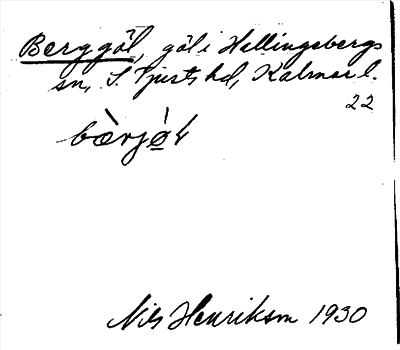 Berggöl, göl i Hallingebergs
sn, S. Tjusts hd, Kalmar l.
22
bærjø̀
Nils Henrikson 1930